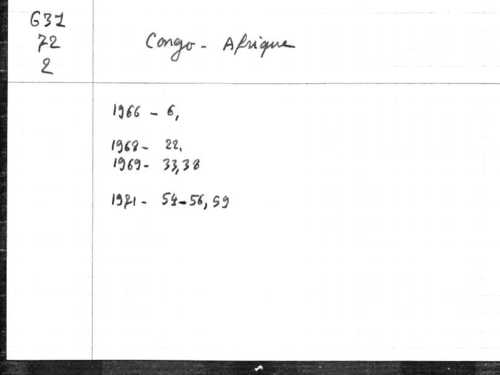 G31
72
2
Congo - Afrique
1966 - 6,
1968 - 22.
1969 - 33,38
1971 - 54-56, 59